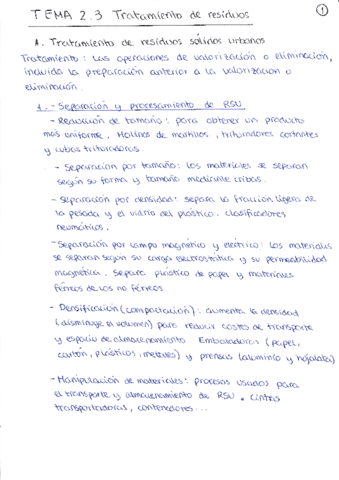 TEMA 2.3 Tratamiento de residuos
1
1. Tratamiento de residuos sólidos urbanos
Tratamiento: Las operaciones de valorización o eliminación,
incluida la preparación anterior a la valorización o
eliminación.
1.- Separación y procesamiento de RSU
- Reducción de tamaño: para obtener un producto
más uniforme. Molinos de martillos, trituradores cortantes
y cubas trituradoras.
- Separación por tamaño: los materiales se separan
según su forma y tamaño mediante cribas.
- Separación por densidad: separa la fracción ligera de
la pesada y el vidrio del plástico. Clasificadores
neumáticos.
- Separación por campo magnético y eléctrico: los materiales
se separan según su carga electrostática y su permeabilidad
magnética. Separa plástico de papel y materiales
férreos de los no férreos.
- Densificación (compactación): aumenta la densidad
(disminuye el volumen) para reducir costes de transporte
y espacio de almacenamiento. Embaladoras (papel,
cartón, plásticos, metales) y prensas (aluminio y hojalata)
- Manipulación de materiales: procesos usados para
el transporte y almacenamiento de RSU. Cintas
transportadoras, contenedores...